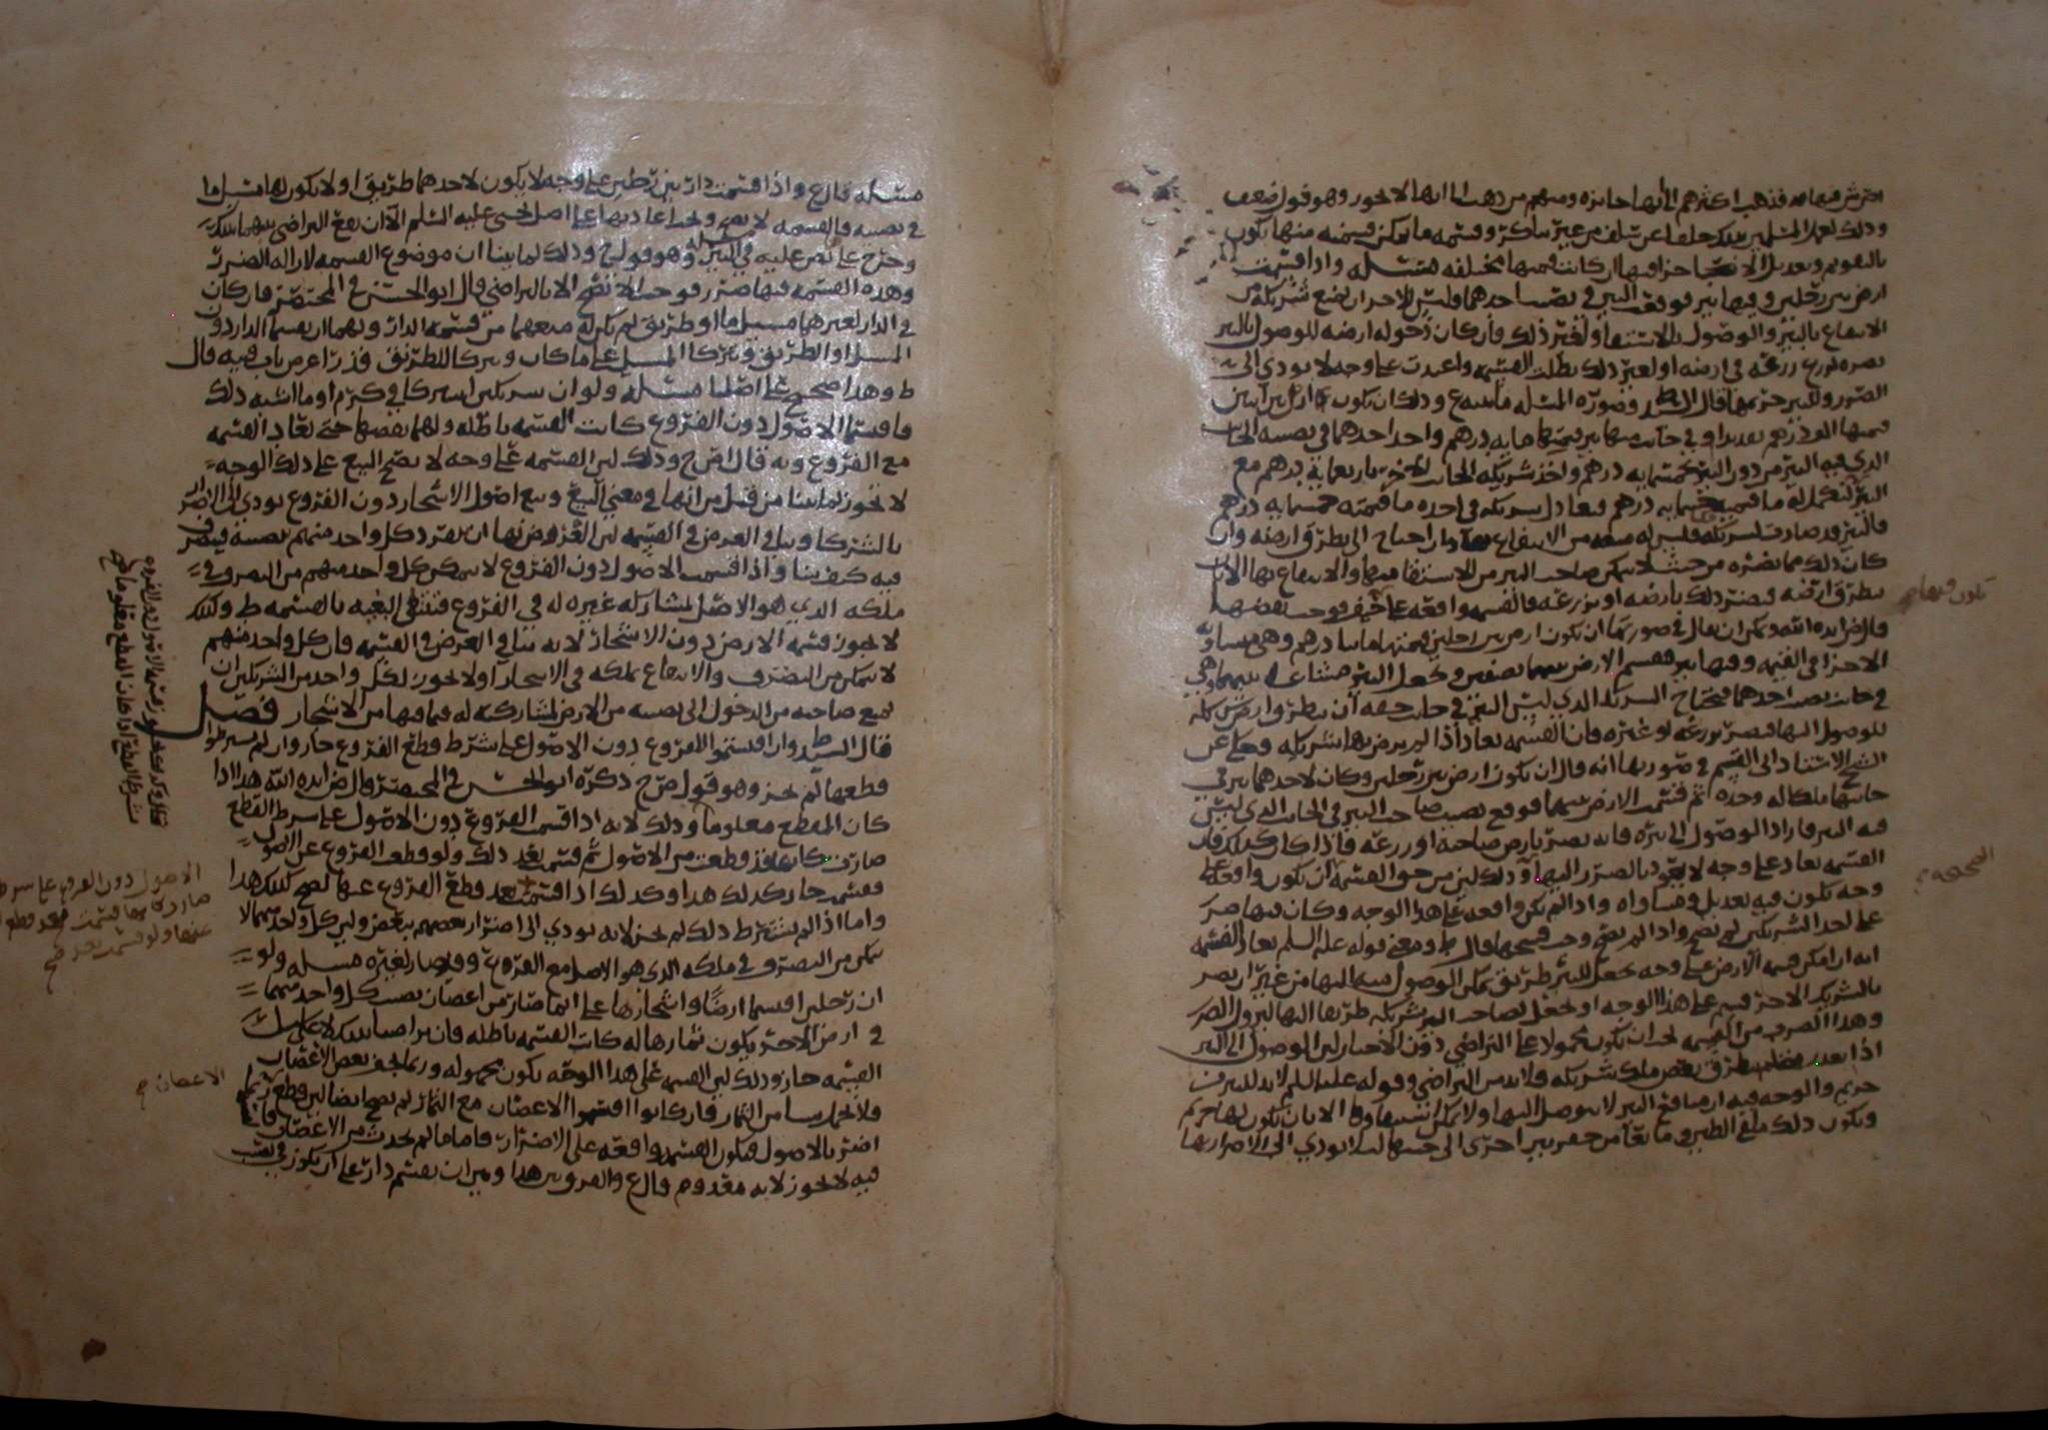 فيها فذهب اكثرهم الى انها جايزه ومنهم من ذهب الى انها لا تجوز وهو قول ضعيف
وذلك لعمل المسلمين بذلك خلفا عن سلف من غير تناكر وقسمه ما يمكن قسمته منها يكون
بالتقويم وتعديل الانصبا اجزا فيها ان كانت قسمتها مختلفه مسئله واذا قسمت
ارض بين رجلين وفيها بير فوقع البير في نصيب احدهما وليس للاخر ان يمنع شريكه من
الانتفاع بالبير والوصول للاستقا او لغير ذلك فان كان دخوله ارضه للوصول بالبير
يضره لزرع زرعه في ارضه او لغير ذلك بطلت القسمه واعيدت على وجه لا يودي الى
الضرر وللبير حريمها قال السيد ط وصوره المسئله ما يسع وذلك ان يكون ارض بين اثنين
قيمتها الف درهم بعديد وفي جانب منها بير قيمتها مايه درهم واخذ احدهما في نصيبه الجانب
الذي فيه البير من دون البير بخمسمايه درهم واخذ شريكه الجانب الاخر باربعمايه درهم مع
البير لتكمل له ما قيمته خمسمايه درهم فعادل شريكه في اخذه ما قيمته خمسمايه درهم
فالبير قد صارت لشريكه فليس له منعه من الانتفاع بها وان احتاج الى يطرق ارضه وان
كان ذلك مما يضره من حيث لا يمكن صاحب البير من الاستقا منها والانتفاع بها الا بان
يطرق ارضه فيضر ذلك بارضه او بزرعه فالقسمه واقعه على حيف فوجب نقضها
قال ض ايده الله ويمكن ان يقال في صورتها ان يكون ارض بين رجلين قيمتها ماىتا درهم وهي متساويه
الاجزا في القيمه وفيها بير فقسم الارض بينهما نصفين وجعل البير مشتاعه بينهما وهي
في جانب نصيب احدهما فيحتاج الشريك الذي ليس البير في جانب حقه ان يطرق ارض شريكه
للوصول اليها فيضر بزرعه او غيره فان القسمه تعاد اذا لم يرض بها شريكه وحكي عن
الشيخ الاستاذ الى القسم في صورتها انه قال ان يكون ارض بين رجلين وكان لاحدهما بير في
جانبها ملكا له وحده ثم قسمت الارض بينهما فوقع نصيب صاحب البير في الجانب الذي ليس
فيه البير فاراد الوصول الى بيره فانه يضر بارض صاحبه او زرعه فاذا كان كذلك فان
القسمه تعاد على وجه لا يعود بالضرر اليها وذلك لان من حق القسمه ان يكون واقعه على
وجه يكون فيه تعديل ومساواه واذا لم يكن واقعه على هذا الوجه وكان فيها ضرر
على احد الشريكين لم تصح واذا لم تصح وجب فسخها قال ط ومعنى قوله عليه السلم تعاد القسمه
انه ان امكن قسمه الارض على وجه يجعل للبير طريق يمكن الوصول فيها اليها من غير ان يضر
بالشريك الاخر قسم على هذا الوجه او يجعل لصاحب البير شريكه طريقا اليها ليزول الضرر
وهذا الضرب من القسمه يجب ان يكون محمولا على التراضي دون الاجبار لان الوصول الى البير
اذا يطرق بعض ملك شريكه فلا بد من التراضي وقوله عليه السلم لا بد للبير من
حريم والوجه فيه ان منافع البير لا يتوصل اليها ولا يمكن استيفاوها الا بان يكون لها حريم
ويكون ذلك ملقى الطين وما نعا من حفر بير اخرى الى جنبها ليلا يودي الى الاضرار بها
يكون فيها صح
الصحيحه
مسئله قال ع واذا قسمت دار بين رجلين على وجه لا يكون لاحدهما طريق او لا يكون لها مسيل ما
في نصيبه فالقسمه لا تصح ويجب اعادتها على اصل يحيى عليه السلم الا ان يقع التراضي بينهما بذلك
وخرج على نص عليه في البير وهو قول ح وذلك لما بينا ان موضوع القسمه لازاله الضرر
وهذه القسمه فيها ضرر فوجب الا تصح الا بالتراضي قال ابو الحسن في المختصر فان كان
في الدار لغيرهما مسيل ما او طريق لم يكن له منعهما من قسمه الدار ولهما ان يقسما الدار دون
المسيل او الطريق ويتركا المسيل على ما كان ويتركا للطريق قدر اعرض باب فيه قال
ط وهذا صحيح على اصلنا مسئله ولو ان شريكين اشتركا في كرم او ما اشبه ذلك
فاقتسما الاصول دون الفروع كانت القسمه باطله ولهما نقضها حتى تعاد القسمه
مع الفروع وبه قال اص ح وذلك لان القسمه على وجه لا يصح البيع على ذلك الوجه
لا تجوز لما بينا من قبل من انها في معنى البيع وبيع اصول الاشجار دون الفروع يودي الى الاضرار
بالشركا وينافي الغرض في القسمه لان الغرض بها ان يفرد كل واحد منهم نصيبه فيتصرف
فيه كيف يشا واذا قسمت الاصول دون الفروع لا يتمكن كل واحد منهم من التصرف في
ملكه الذي هو الاصل لمشاركه غيره له في الفروع فتنتفي البغيه بالقسمه ط وكذلك
لا يجوز قسمه الارض دون الاشجار لانه ينافي الغرض في القسمه فان كل واحد منهم
لا يتمكن من التصرف والانتفاع بملكه في الاشجار ولا يجوز لكل واحد من الشريكين ان
يمنع صاحبه من الدخول الى نصيبه من الارض لمشاركته له فيما فيها من الاشجار فصل
قال السيد ط وان اقتسموا الفروع دون الاصول على شرط قطع الفروع جاز وان لم يشرطوا
قطعها لم يجز وهو قول ص ح ذكره ابو الحسن في المختصر قال ض ايده الله هذا اذا
كان المقطع معلوما وذلك لانه اذا اقتسم الفروع دون الاصول على شرط القطع
صارت كانها قد قطعت من الاصول ثم قسمت بعد ذلك ولو قطعت الفروع عن الاصول
وقسمت جاز كذلك هذا وكذلك اذا قسمت بعد قطع الفروع عنها يصح كذلك هذا
واما اذا لم يشترط ذلك لم يجز لانه يودي الى اضرار بعضهم ببعض وليس كل واحد منهما لا
يمكن من التصرف في ملكه الذي هو الاصل مع الفروع وقد صار لغيره مسله ولو
ان رجلين اقتسما ارضا واشجارها على انما صار من اغصان نصيب كل واحد منهما
في ارض الاخر يكون ثمارها له كانت القسمه باطله فان تراضيا بذلك لا على سبيل
القسمه جاز وذلك لان القسمه على هذا الوجه يكون مجهوله وربما يجف بعض الاغصان
فلا يحمل شيا من الثمار فان كانوا اقتسموا الاغصان مع الثمار لم يصح ايضا لان قطع
اضر بالاصول فيكون القسمه واقعه على الاضرار فاما ما لم يحدث من الاغصان
فيه لا يجوز لانه معدوم قال ع والفرق بين هذا وبين ان يقسم دار على ان يكون في نصيب
قسمه الاصول دون الفروع
بشرط القطع اذا كان القطع معلوما صح
الاصول دون الفروع على شرط
صار كانها قسمت بعد قطع
عنها ولو قسمت بعد صح
الاغصان صح